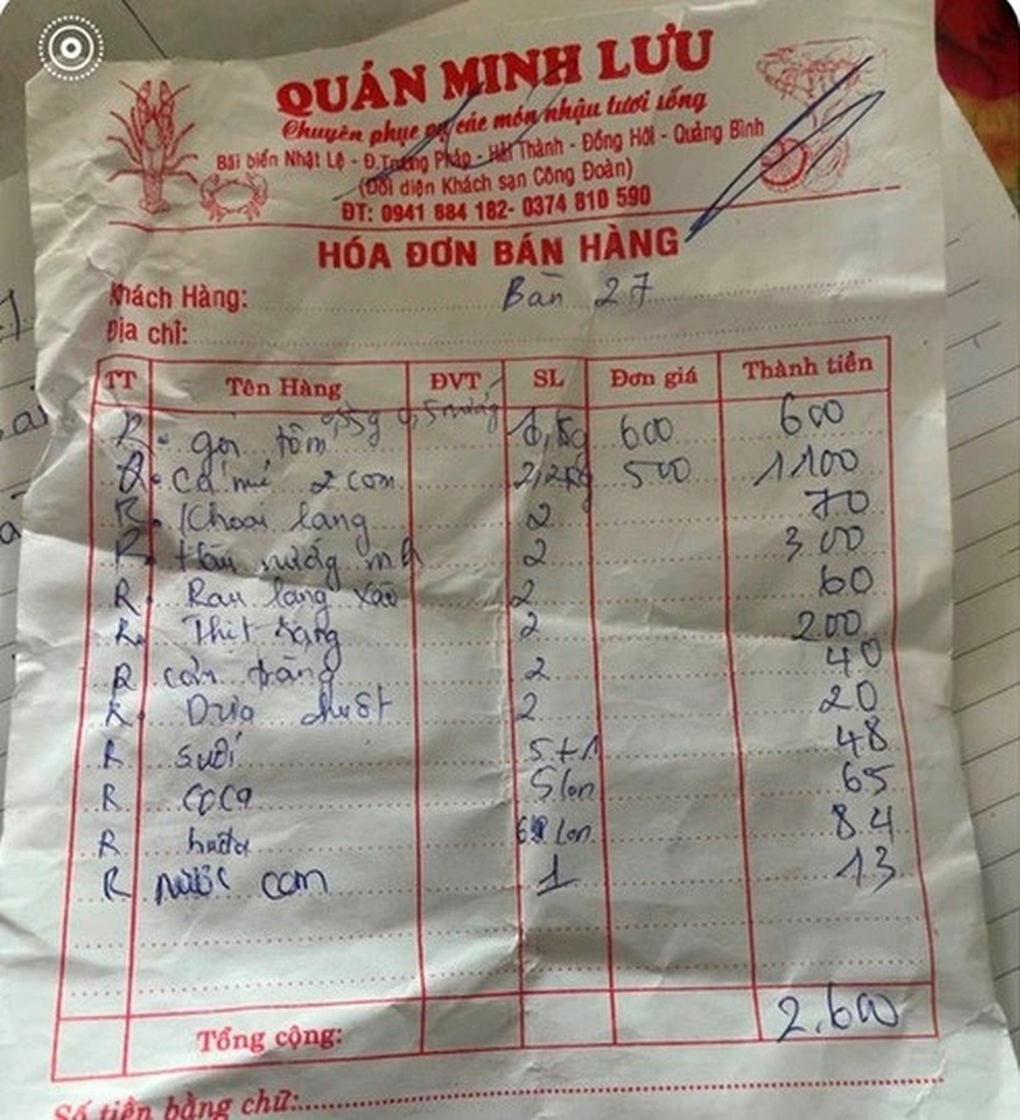 QUÁN MINH LƯU
Chuyên phục vụ các món nhậu tươi sống
Bãi biển Nhật Lệ - Đ.Trương Pháp - Hải Thành - Đồng Hới - Quảng Bình
(Đối diện Khách sạn Công Đoàn)
ĐT: 0941 884 182- 0374 810 590
HÓA ĐƠN BÁN HÀNG
Khách Hàng: Bàn 27
Địa chỉ:
TT Tên Hàng ĐVT SL Đơn giá Thành tiền
R gỏi tôm 0,5 nướng 600 600
R Cá mú 2 con 2,2kg 500 1100
R Khoai lang 2 70
R Hàu nướng mh 2 300
R Rau lang xào 2 60
R Thịt rang 2 200
R cơm trắng 2 40
R Dưa chuột 2 20
R suối 5+1 48
R coca 5 lon 65
R huda lon 84
R nước cam 1 13
Tổng cộng: 2.600
Số tiền bằng chữ: